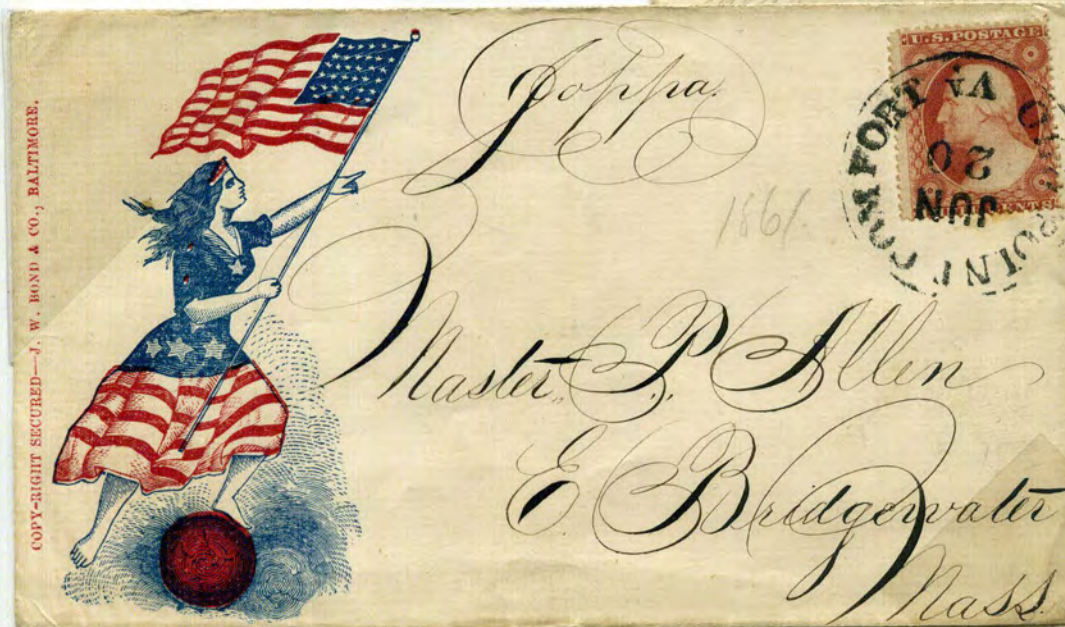 COPY-RIGHT SECURED—J. W. BOND & CO., BALTIMORE.
Joppa.
U.S. POSTAGE
CENTS
POINT COMFORT VA
20
JUN
1861
Master, P. Allen
E. Bridgewater
Mass.